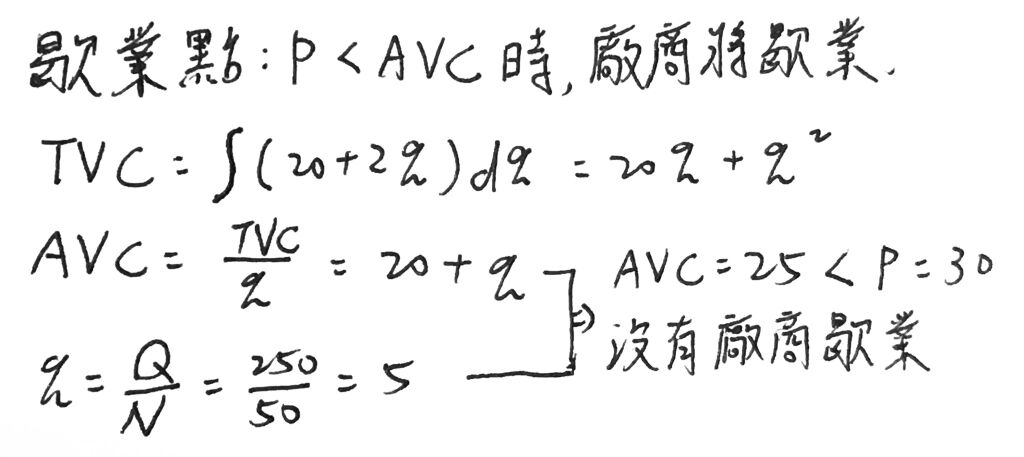 歇業點：P < AVC 時, 廠商將歇業.
TVC = ∫(20+2q)dq = 20q + q²
AVC = TVC/q = 20 + q
q = Q/N = 250/50 = 5
⇒ AVC = 25 < P = 30
沒有廠商歇業